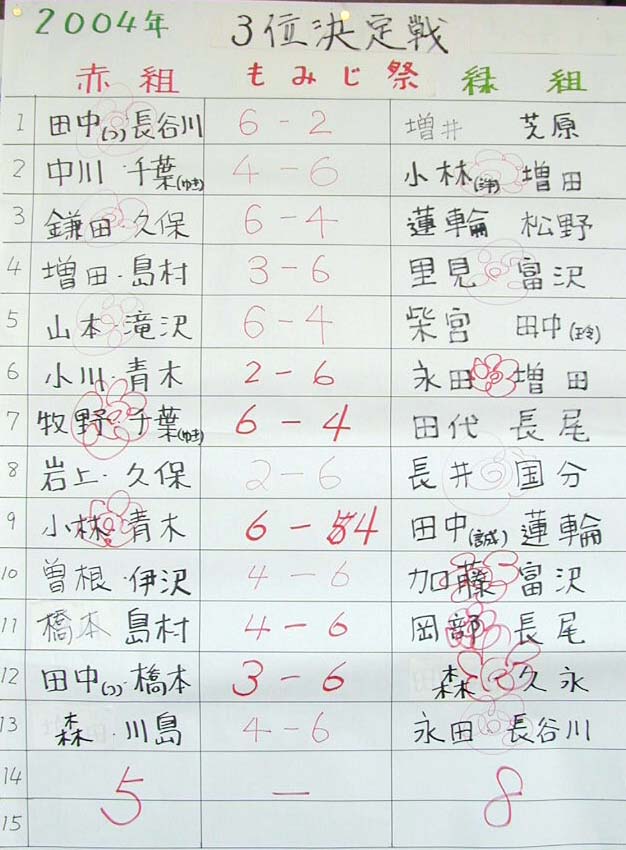 2004年 3位決定戦
赤組 もみじ祭 緑組
1 田中(つ) 長谷川 6-2 増井 芝原
2 中川・千葉(ゆき) 4-6 小林 増田
3 鎌田・久保 6-4 蓮輪 松野
4 増田・島村 3-6 里見 富沢
5 山本・滝沢 6-4 柴宮 田中(玲)
6 小川・青木 2-6 永田 増田
7 牧野・千葉(ゆき) 6-4 田代 長尾
8 岩上・久保 2-6 長井 国分
9 小林 青木 6-4 田中(誠) 蓮輪
10 曽根・伊沢 4-6 加藤 富沢
11 橋本 島村 4-6 岡部 長尾
12 田中(つ)・橋本 3-6 森 久永
13 森・川島 4-6 永田 長谷川
14 5 - 8
15